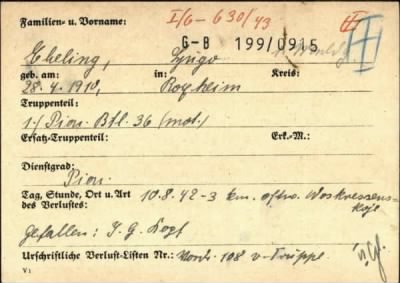 Familien- u. Vorname: I/G - 630/43
G-B 199/0915
Ebeling,
geb. am: in: Kreis:
28. 4. 1910, Roxheim
Truppenteil:
1./ Pion. Btl. 36 (mot.)
Ersatz-Truppenteil: Erk.-M.:
Dienstgrad:
Pion.
Tag, Stunde, Ort u. Art 10.8.42 - 3 km. ostw.
des Verlustes:
gefallen: I. G. Kopf
Urschriftliche Verlust-Listen Nr.: 108 v. Truppe
V1